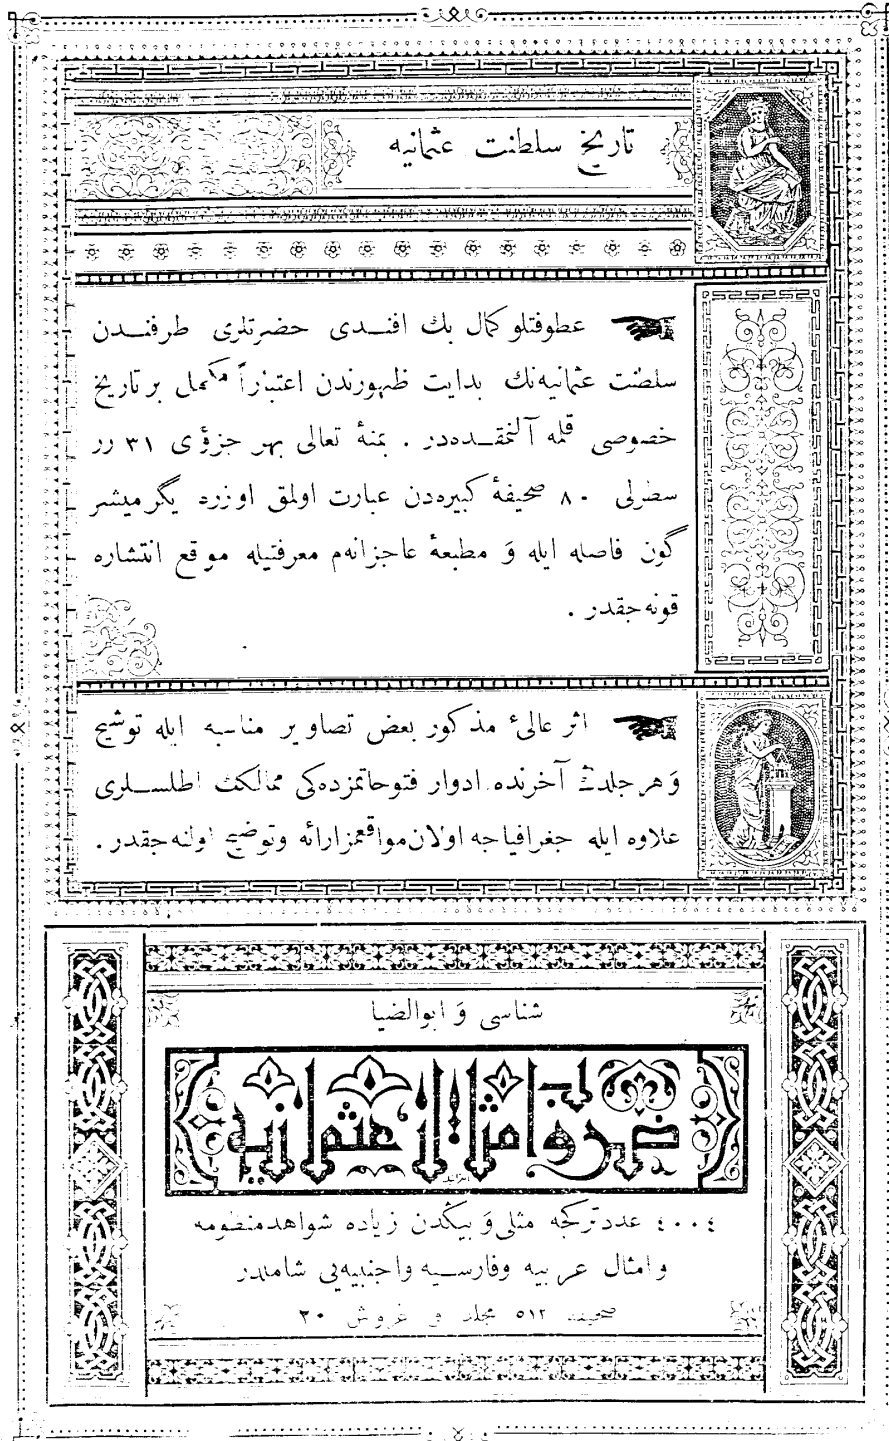 تاريخ سلطنت عثمانيه
عطوفتلو كمال بك افندى حضرتلرى طرفندن
سلطنت عثمانيه‌نك بدايت ظهورندن اعتبارًا مكمل بر تاريخ
خصوصى قلمه آلنمقده‌در . بمنهٔ تعالى بهر جزؤى ٣١ رر
سطرلى ٨٠ صحيفهٔ كبيره‌دن عبارت اولمق اوزره يگرميشر
گون فاصله ايله وَ مطبعهٔ عاجزانه‌م معرفتيله موقع انتشاره
قونه‌جقدر .
اثر عالىٔ مذكور بعض تصاوير مناسبه ايله توشيح
وَ هر جلدڭ آخرنده ادوار فتوحاتمزده‌كى ممالكك اطلسلرى
علاوه ايله جغرافياجه اولان مواقعمز ارائه وتوضيح اولنه‌جقدر .
شناسى وَ ابوالضيا
ضروب امثال عثمانيه
٤٠٠٤ عدد تركجه مثلى وَ بيڭدن زياده شواهد منظومه
وامثال عربيه وفارسيه واجنبيه‌يى شاملدر
صحيفه ٥١٢ مجلد فى غروش ٣٠